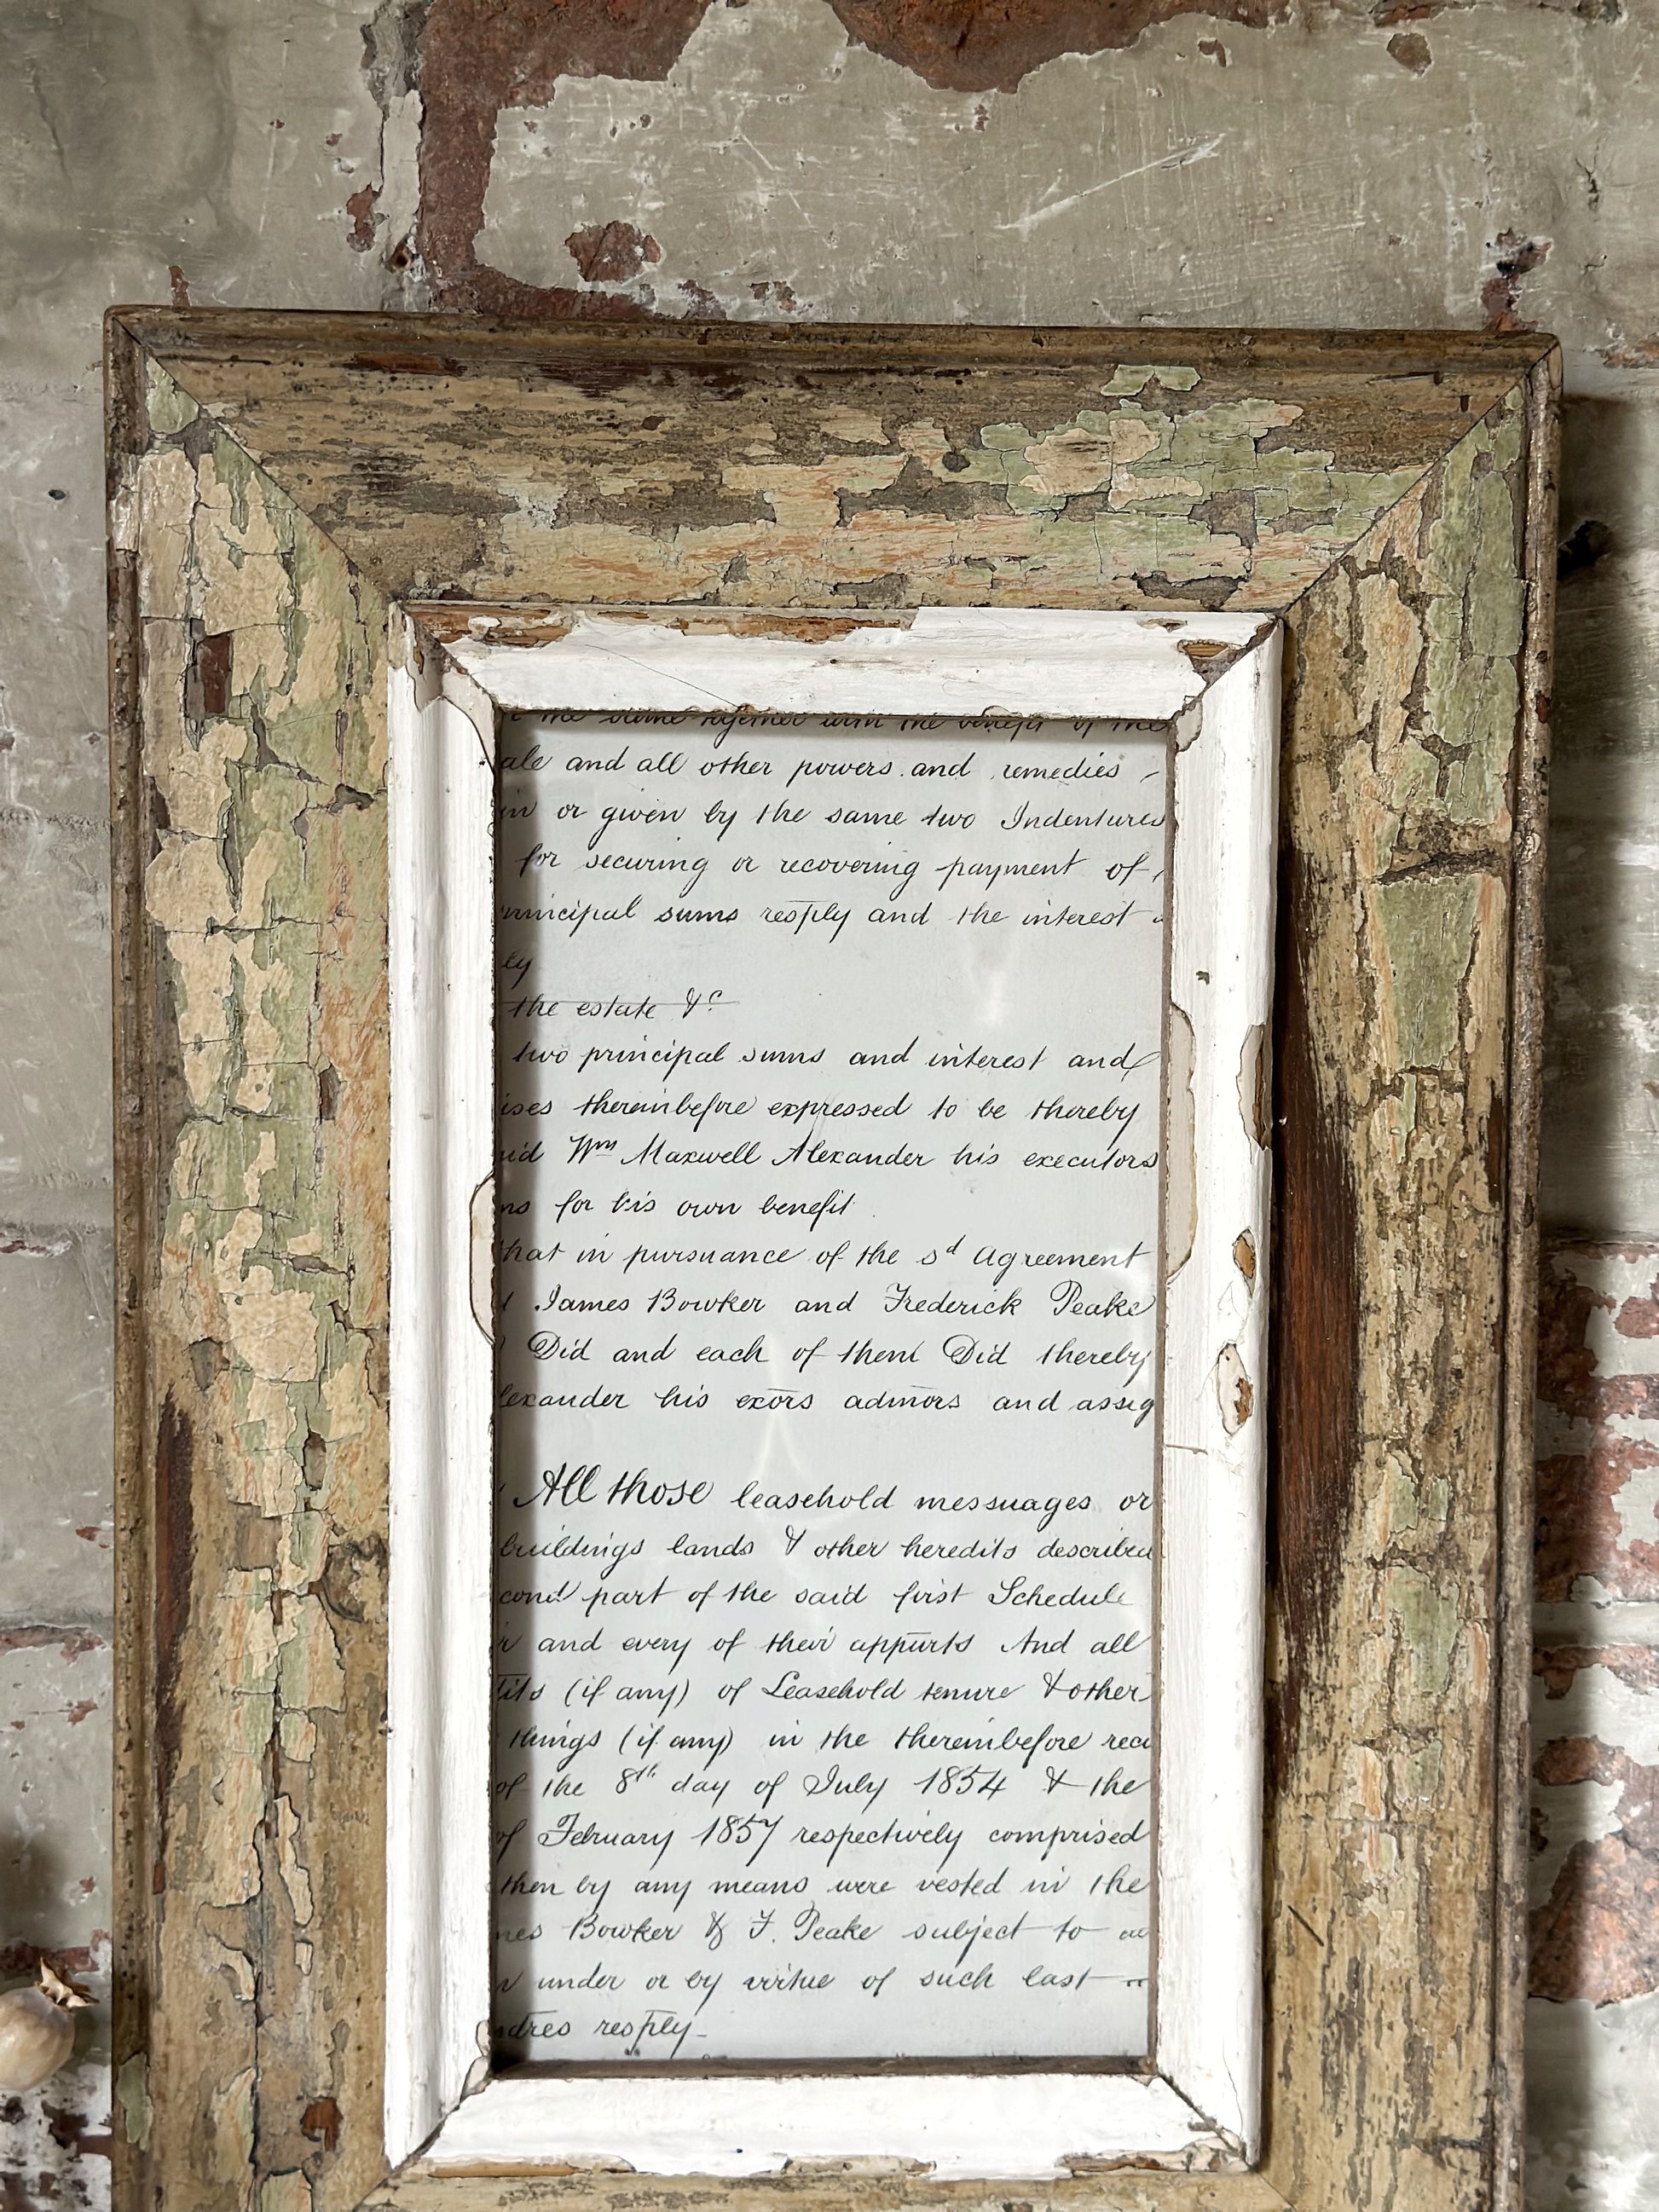 the same together with the benefit of the
ale and all other powers and remedies
in or given by the same two Indentures
for securing or recovering payment of
rincipal sums resply and the interest
ly
the estate &c
two principal sums and interest and
ises thereinbefore expressed to be thereby
id Wm Maxwell Alexander his executors
ns for his own benefit
hat in pursuance of the sd Agreement
James Bowker and Frederick Peake
Did and each of them Did thereby
lexander his exors admors and assig
All those leasehold messuages or
buildings lands & other heredits described
cond part of the said first Schedule
r and every of their appurts And all
its (if any) of Leasehold tenure & other
things (if any) in the thereinbefore reci
of the 8th day of July 1854 & the
of February 1857 respectively comprised
then by any means were vested in the
mes Bowker & F. Peake subject to
under or by virtue of such last
dres resply